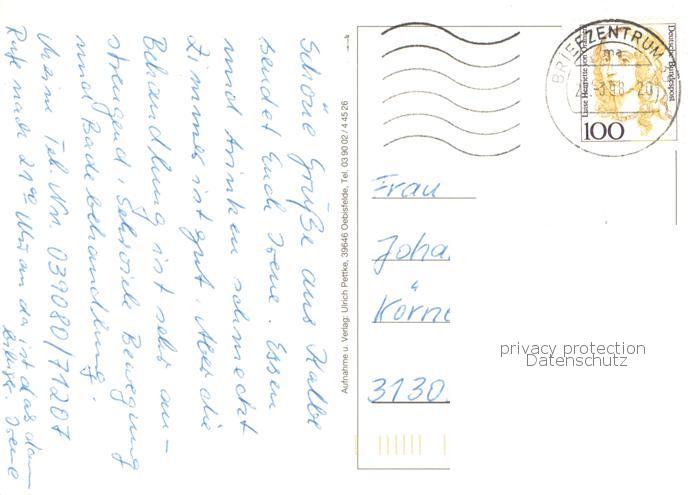 Schöne Grüße aus Kalbe
sendet Euch Irene. Essen
und trinken schmeckt
Zimmer ist gut. Aber die
Behandlung ist sehr an-
strengend, sehr viele Bewegung
und Badebehandlung.
Meine Tel. Nr. 039080/71207
Ruft nach 21⁰⁰ Uhr an da ist das dann
billiger. Irene
Aufnahme u. Verlag: Ulrich Pettke, 39646 Oebisfelde, Tel. 03 90 02 / 4 45 26
BRIEFZENTRUM
Deutsche Bundespost
Luise Henriette von Oranien
100
Frau
Joha
Körne
3130
privacy protection
Datenschutz